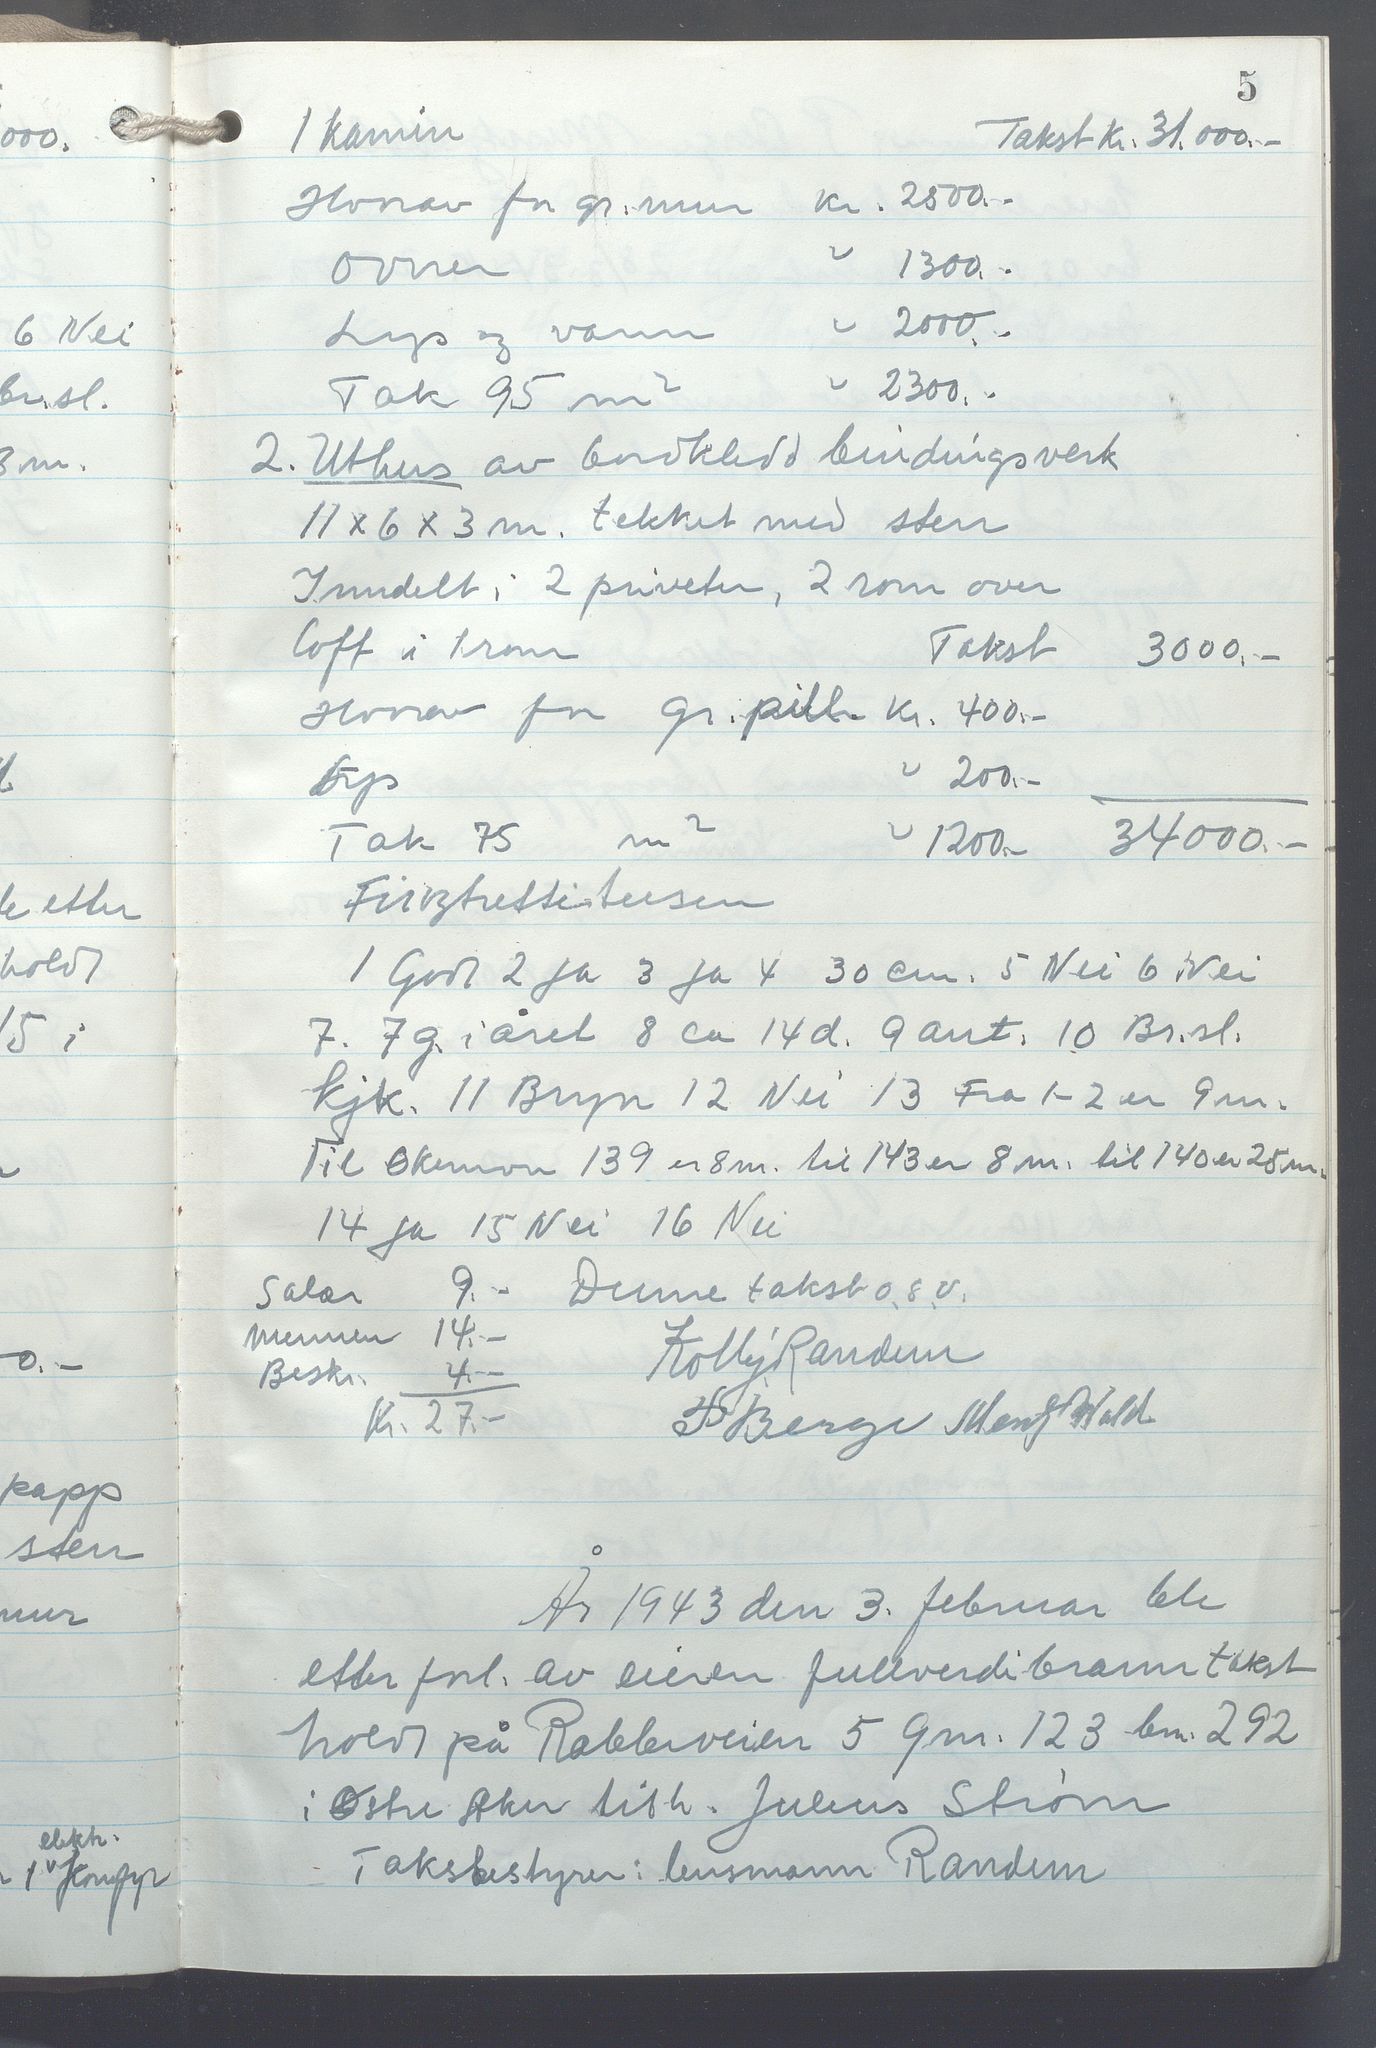 000.
6 Nei
br.sl.
3 m.
te etter
holdt
15 i
0.-
papp
sten
mur
elektr.
1 komfyr
5
1 kamin Takst kr. 31.000.-
Hvorav for gr.mur kr. 2500.-
Ovner " 1300.-
Lys og vann " 2000.-
Tak 95 m² " 2300.-
2. Uthus av bordkledd bindingsverk
11 x 6 x 3 m. tekket med sten
Inndelt i 2 priveter, 2 rom over
loft i 1 rom Takst 3000.-
Hvorav for gr.pill. kr. 400.-
Lys " 200.-
Tak 75 m² " 1200.- 34000.-
Firiogtrettitusen
1 Godt 2 ja 3 ja 4 30 cm. 5 Nei 6 Nei
7. 7 g. i året 8 ca 14 d. 9 ant. 10 Br.sl.
kjk. 11 Bryn 12 Nei 13 Fra 1-2 er 9 m.
Til 139 er 8 m. til 143 er 8 m. til 140 er 25 m.
14 ja 15 Nei 16 Nei
Salær 9.- Denne takst o.s.v.
Mennen 14.-
Kolbj Randem
Beskr. 4.-
Kr. 27.- Berge Wold
År 1943 den 3. februar ble
etter forl. av eieren fullverdibranntakst
holdt på Rabbeveien 5 Gnr. 123 bnr. 292
i Østre Aker tilh. Julius Strøm
Takstbestyrer: lensmann Randem